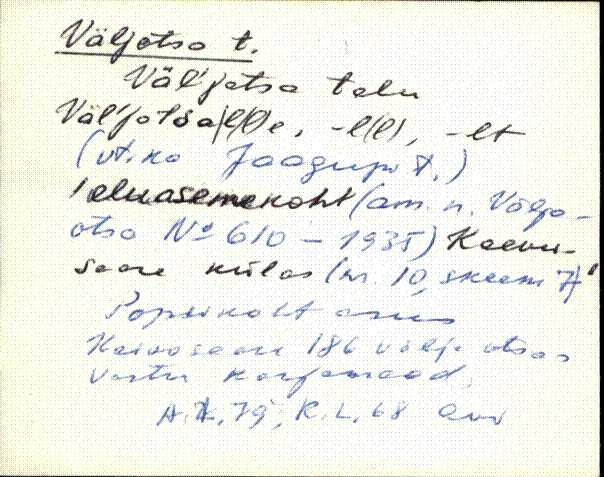 Väljotsa t.
Väl'jotsa talu
Väl'jotsa|l(l)e, -l(l), -lt
(vt. ka Jaagupi t.)
'eluasemekoht (am. n. Välja-
otsa No 610 – 1935) Kaevu-
saare külas (nr. 10, skeem 7)'
Popsikoht asus
Kaivosaare 186 välja otsas
vastu karjamaad,
A.K. 79, K.L. 68